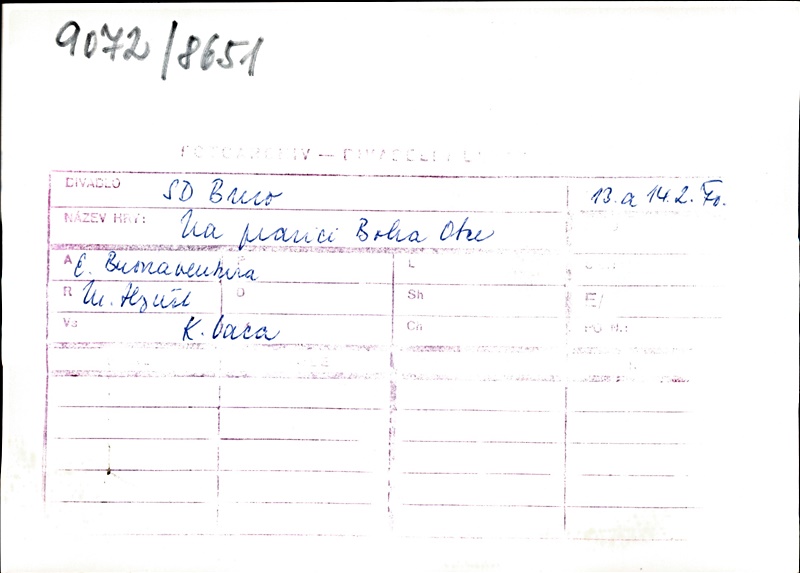 9072/8651
FOTOARCHIV — DIVADELNÍ
DIVADLO SD Brno 13. a 14.2. 70.
NÁZEV HRY: Na pravici Boha Otce
A E. Buonaventura L
R M. Hynšt O Sh E/
Vs K. Vaca Ch